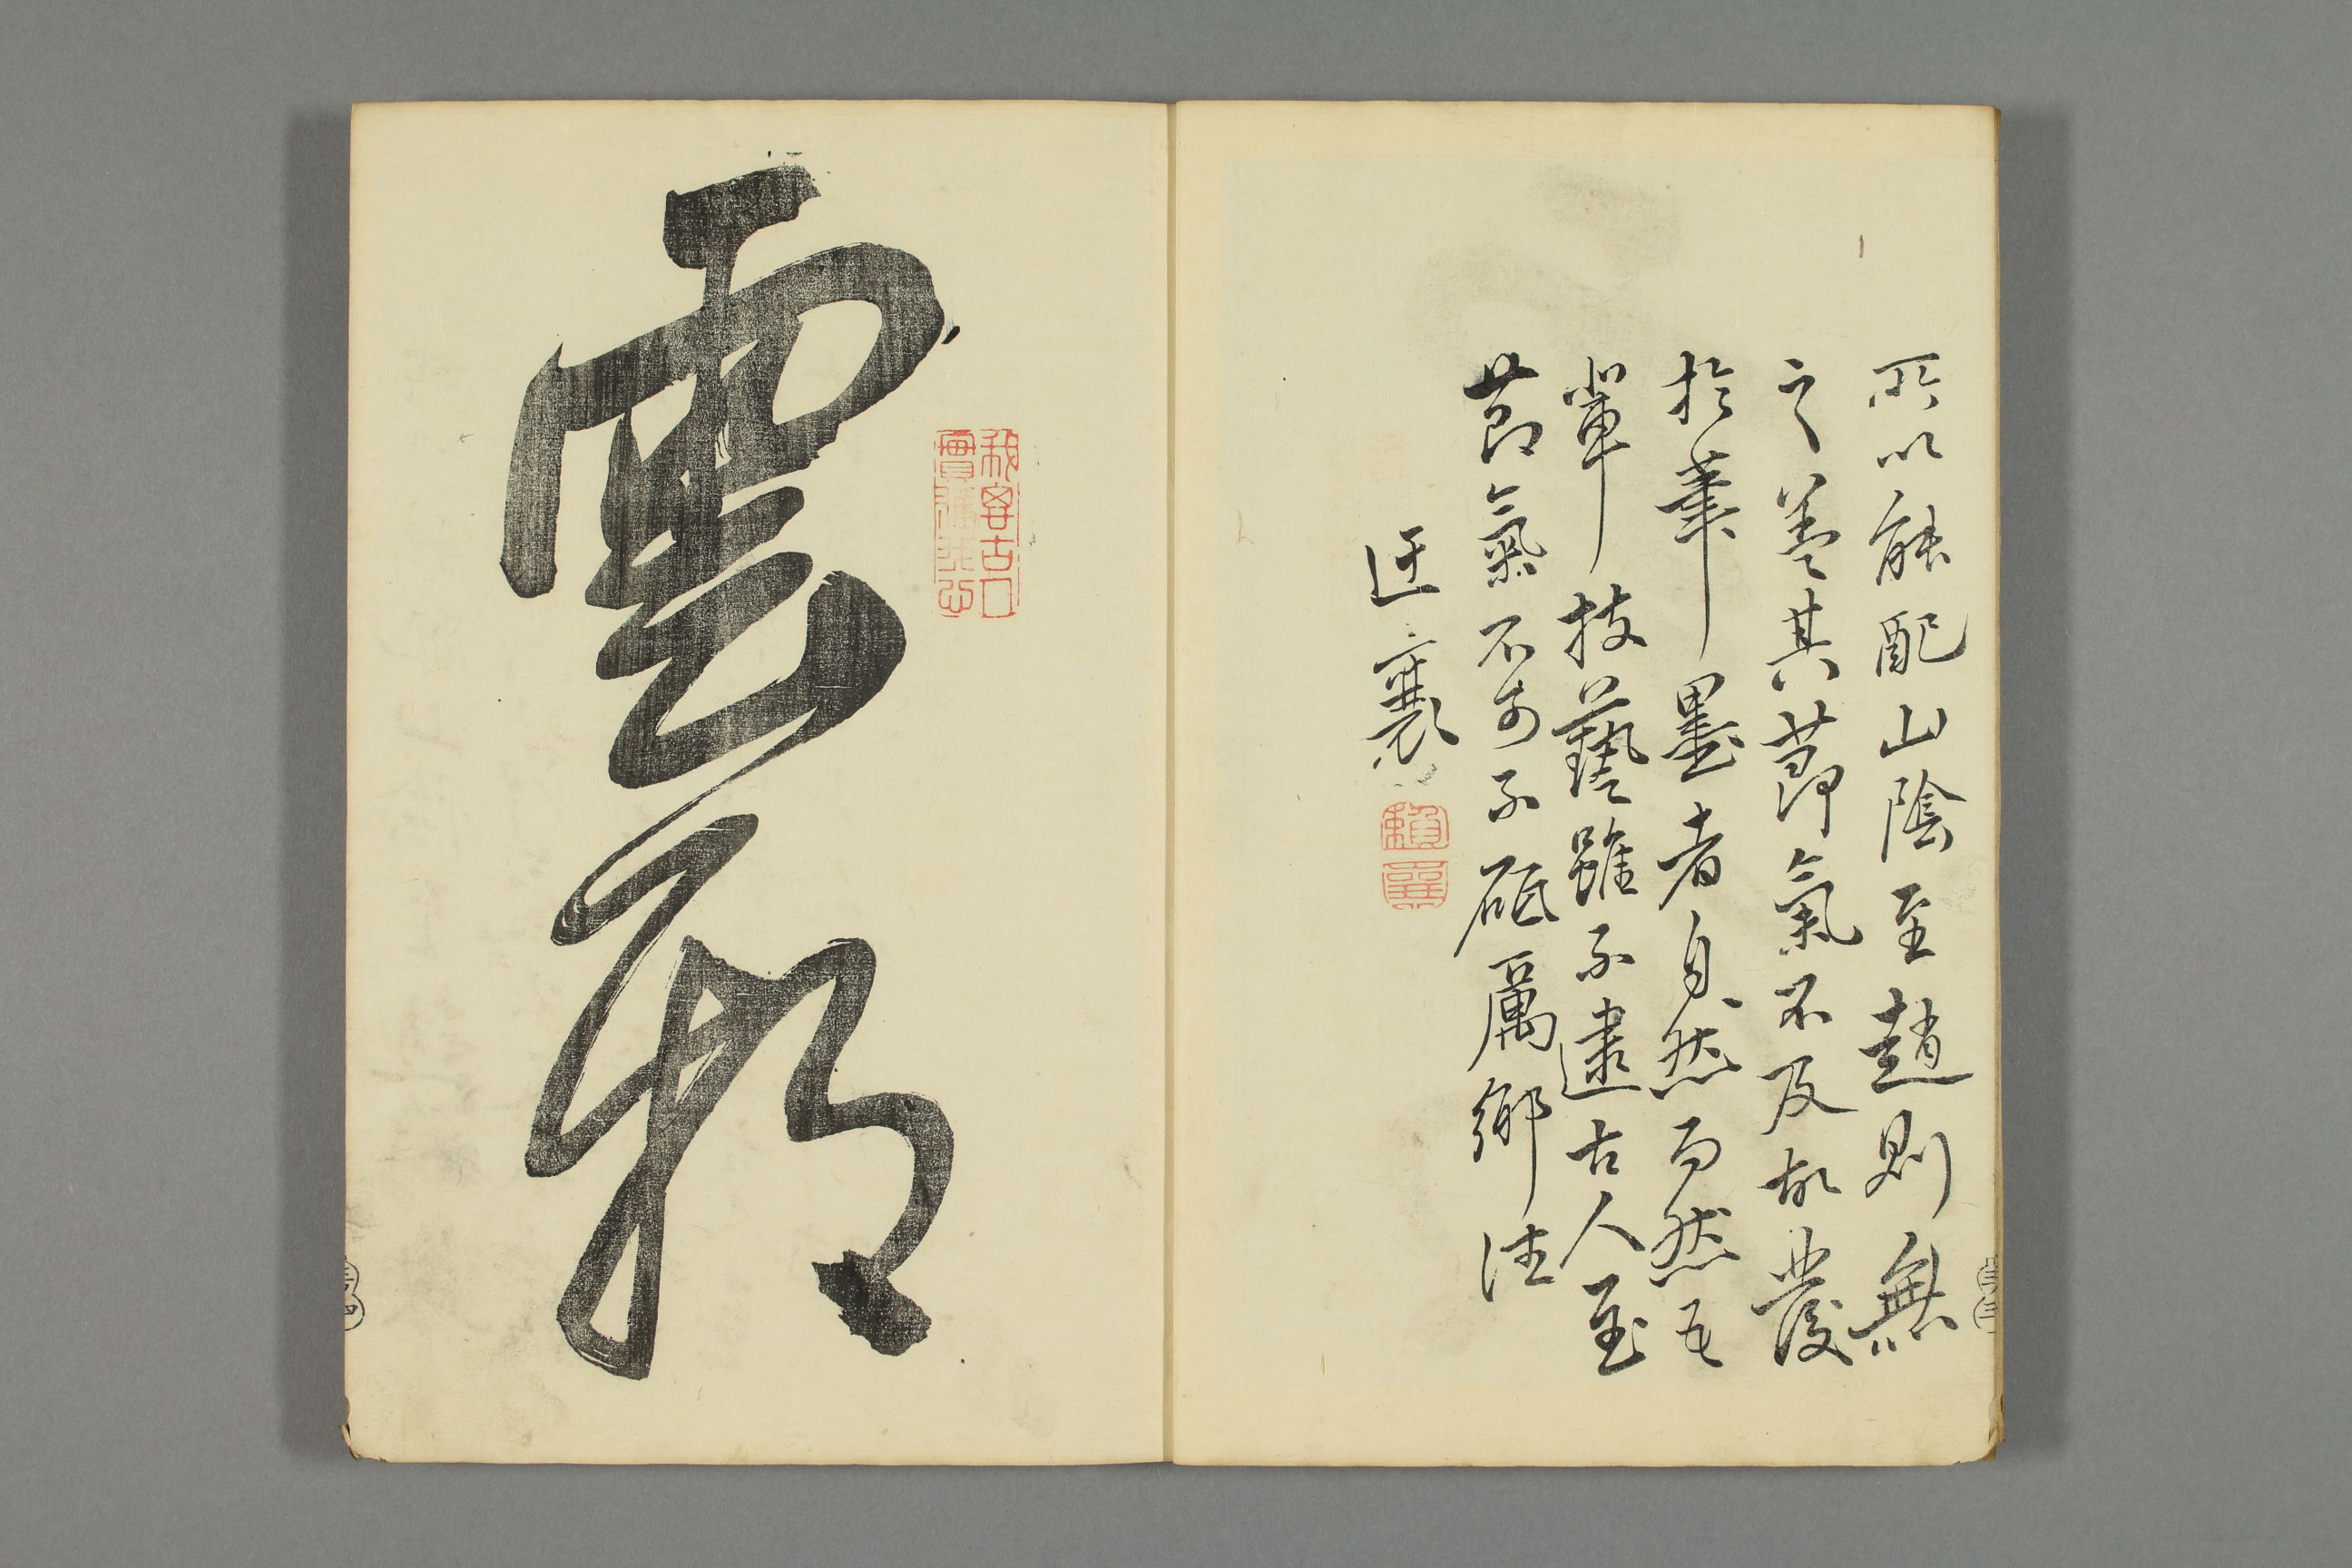 所以能配山陰至趙則無
之蓋其節氣不及故發
於筆墨者自然而然吾
輩技藝雖不逮古人至
節氣不可不砥厲鄉往
匡襄
賴襄
雲